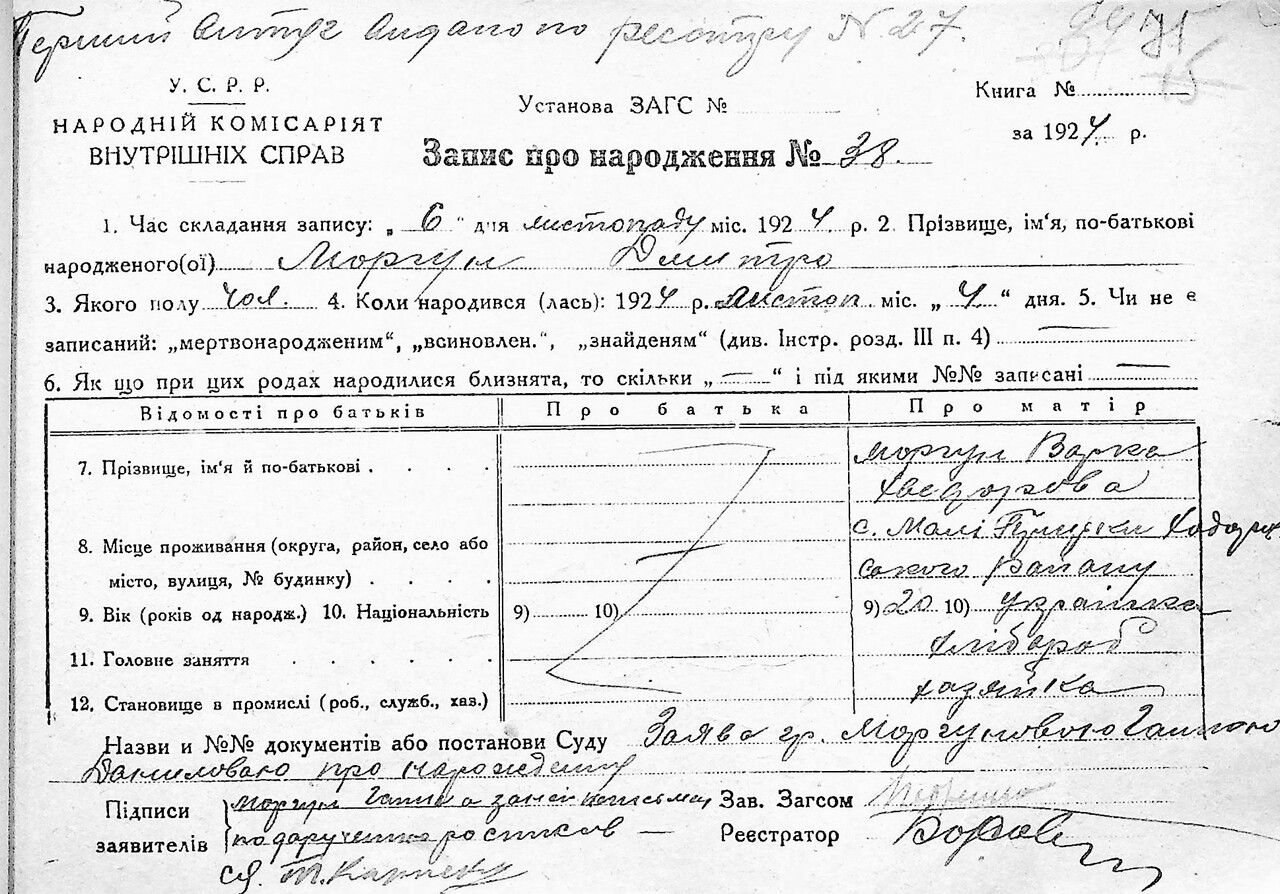 Перший витяг видано по реєстру N 27.
У. С. Р. Р.
НАРОДНІЙ КОМІСАРІЯТ
ВНУТРІШНІХ СПРАВ
Установа ЗАГС №
Книга №
75
за 1924 р.
Запис про народження № 38.
1. Час складання запису: „ 6 " дня листопаду міс. 1924 р. 2. Прізвище, ім'я, по-батькові
народженого(ої) Моргун Дмитро
3. Якого полу чол. 4. Коли народився (лась): 1924 р. листоп міс. „ 4 " дня. 5. Чи не є
записаний: „мертвонародженим", „всиновлен.", „знайденям" (див. Інстр. розд. III п. 4) —
6. Як що при цих родах народилися близнята, то скільки „ — " і під якими №№ записані —
Відомості про батьків Про батька Про матір
7. Прізвище, ім'я й по-батькові . . . . Моргун Варка
Хведорова
с. Малі
8. Місце проживання (округа, район, село або
місто, вулиця, № будинку) . . . . ського Району
9. Вік (років од народж.) 10. Національність 9) 10) 9) 20 10) українка
11. Головне заняття . . . . . хлібороб
12. Становище в промислі (роб., служб., хаз.) хазяйка
Назви и №№ документів або постанови Суду Заява гр. Моргуновою Ганною
Даниловаю про народження
Підписи
заявителів
Моргун Ганна а за неї
Зав. Загсом
Реєстратор